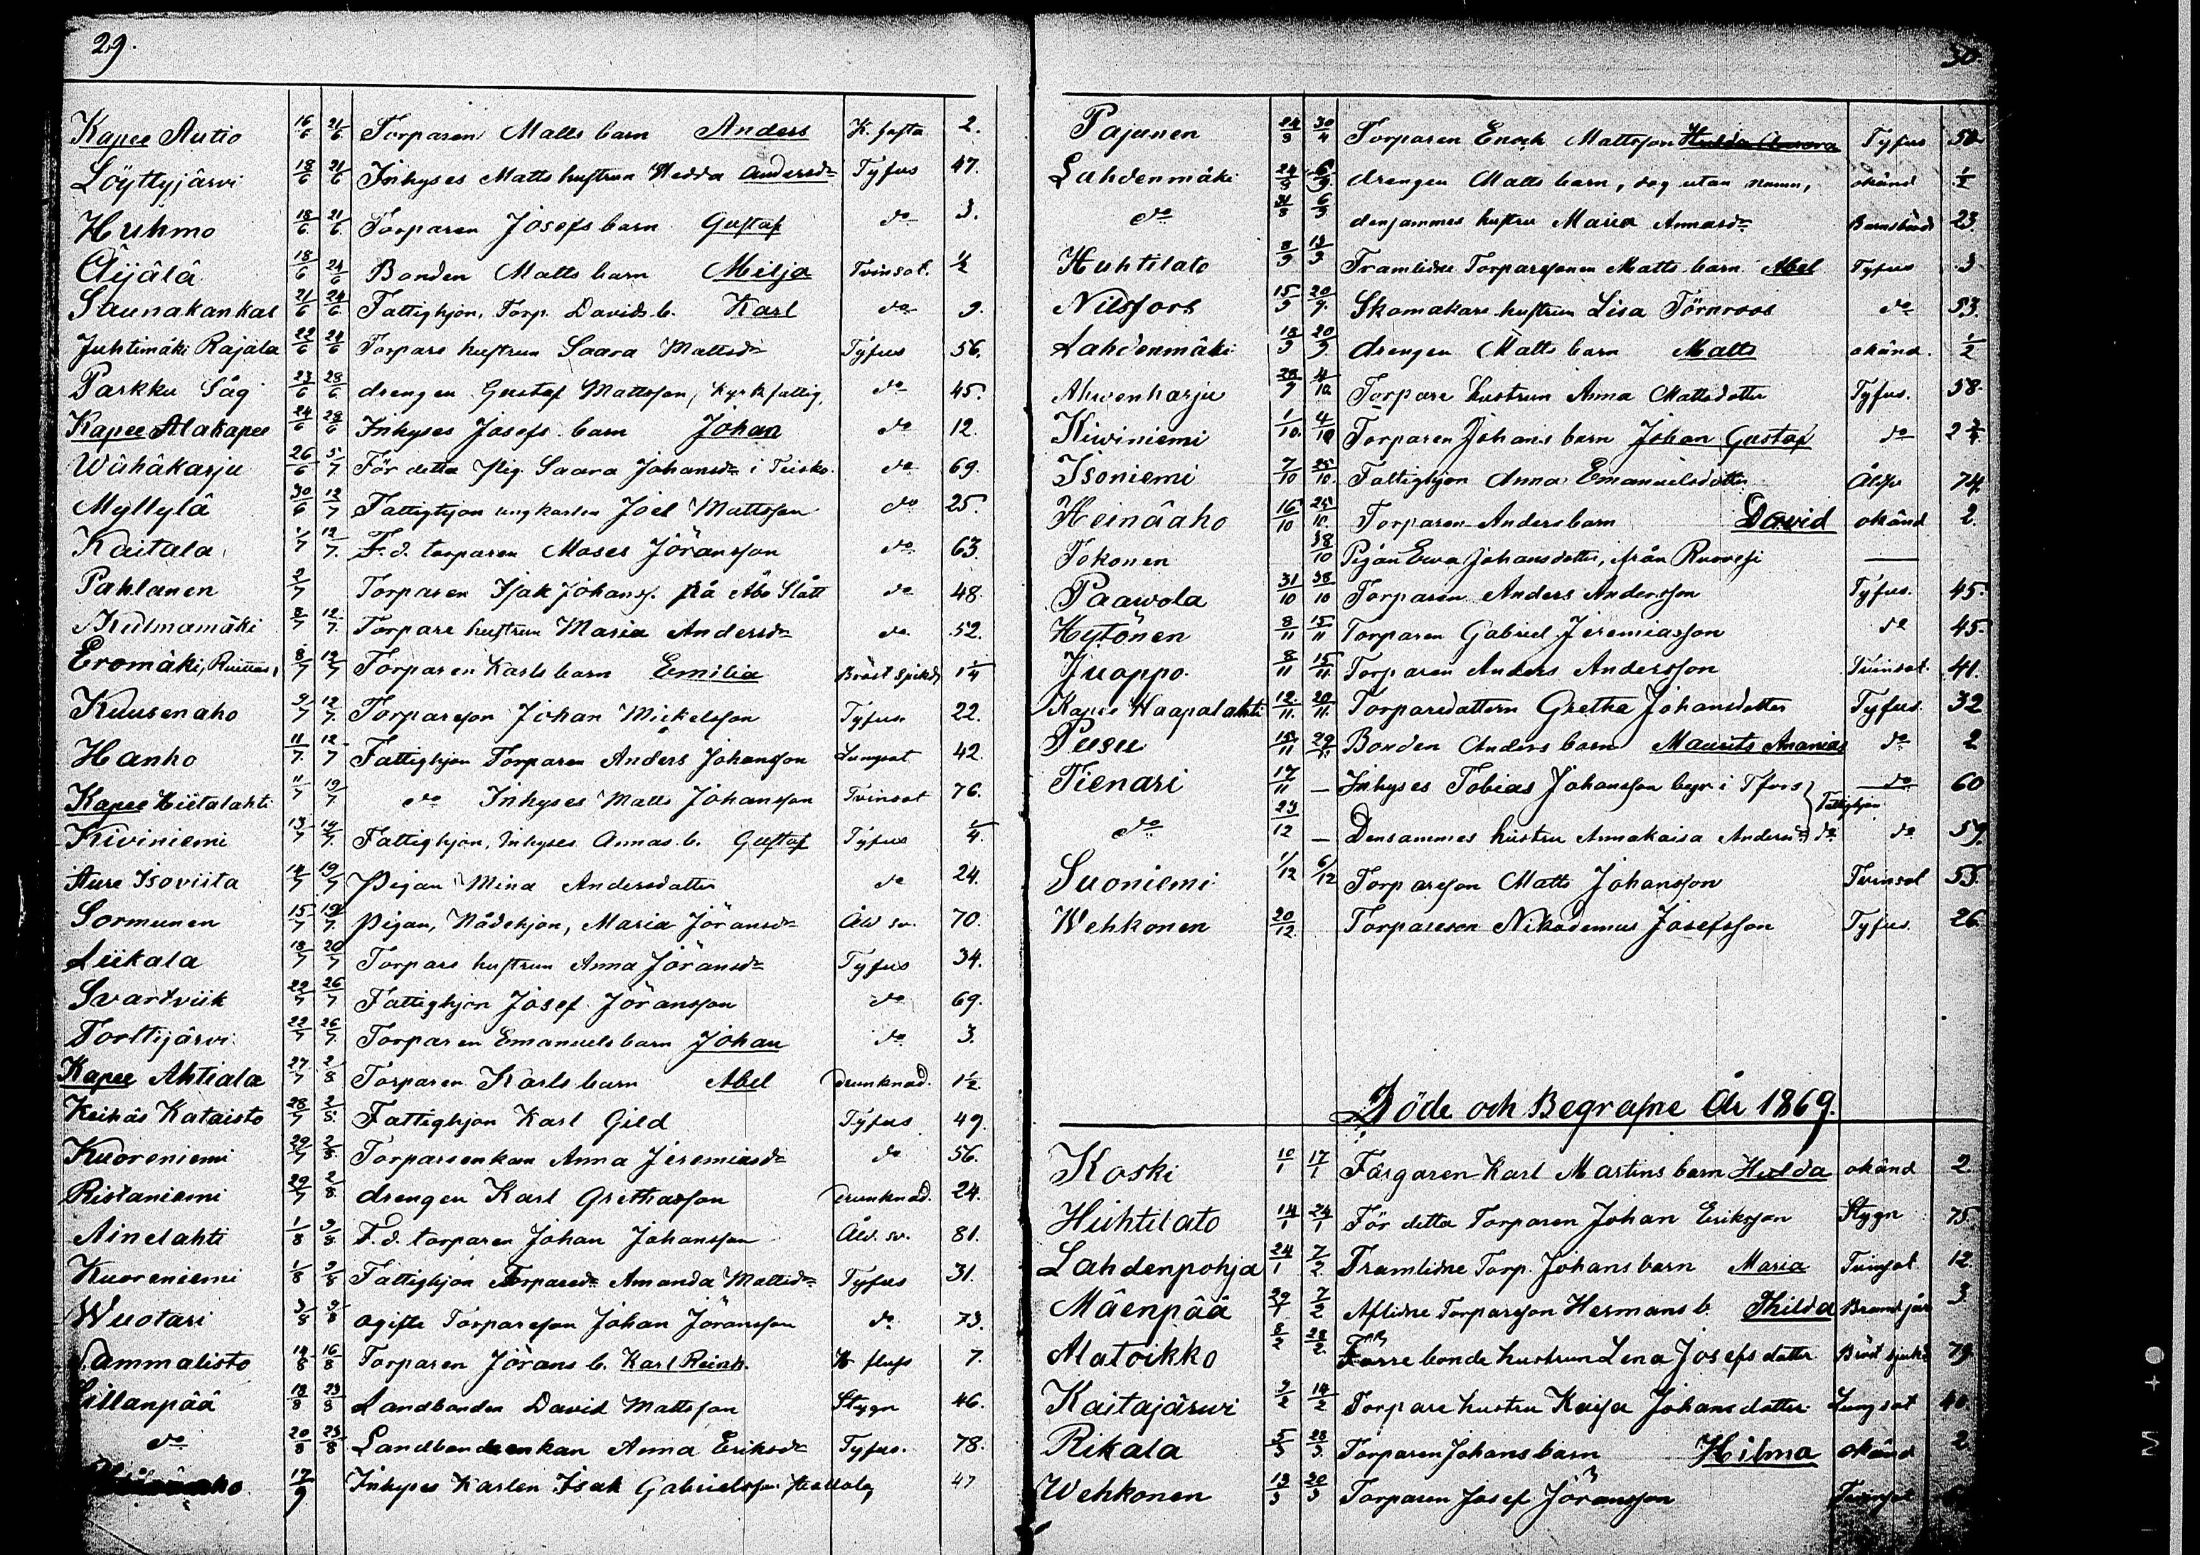 29.
Kapee Autio 16/6 21/6 Torparen Matts barn Anders K. hosta 2.
Löyttyjärvi 18/6 21/6 Inhyses Matts hustrun Hedda Andersdr Tyfus 47.
Huhmo 18/6 21/6 Torparen Josefs barn Gustaf do 3.
Äijälä 18/6 24/6 Bonden Matts barn Milja Tvinsot. 1/2
Saunakankas 21/6 24/6 Fattighjon, Torp. Davids b. Karl do 9.
Juhtimäki Rajala 22/6 24/6 Torpare hustrun Saara Mattsdr Tyfus 56.
Parkku Såg 23/6 28/6 drengen Gustaf Mattsson, kyrkfattig, do 45.
Kapee Alakapee 24/6 28/6 Inhyses Josefs barn Johan do 12.
Wähäkarju 26/6 5/7 För detta pig. Saara Johansdr i Teisko. do 69.
Myllylä 30/6 12/7 Fattighjon ungkarlen Joel Mattsson do 25.
Kaitala 1/7 12/7. F.d. torparen Moses Jöransson do 63.
Pahlanen 2/7 Torparen Isak Johanss. frå Åbo Slått do 48.
Kulmamäki 8/7 12/7. Torpare hustrun Maria Andersdr do 52.
Eromäki, 8/7 12/7 Torparen Karls barn Emilia Bröst sjukd 1 1/4
Kuusenaho 9/7 12/7. Torpareson Johan Mickelsson Tyfus 22.
Hanho 11/7. 12/7 Fattighjon Torparen Anders Johansson Lungsot 42.
Kapee Hiitalahti 11/7 19/7 do Inhyses Matts Johansson Tvinsot 76.
Kiviniemi 13/7 19/7. Fattighjon, Inhyses Annas b. Gustaf Tyfus 1/4.
Aure Isoviita 14/7 19/7 Pigan Mina Andersdotter do 24.
Sormunen 15/7 19/7. pigan, Nådehjon, Maria Jöransdr Åld sv. 70.
Liikala 18/7 20/7 Torpare hustrun Anna Jöransdr Tyfus 34.
Svartviik 22/7 26/7 Fattighjon Josef Jöransson do 69.
Torttijärvi 22/7 26/7. Torparen Emanuels barn Johan do 3.
Kapee Ahtiala 27/7 2/8 Torparen Karls barn Abel Drunknad. 1 1/2.
Keihäs Kataisto 28/7 2/8. Fattighjon Karl Gild Tyfus 49.
Kuoreniemi 29/7 2/8. Torpareenkan Anna Jeremiasdr do 56.
Ristaniemi 29/7 2/8. drengen Karl Grethasson Drunknad. 24.
Ainelahti 1/8 9/8. F.d. torparen Johan Johansson Åld. sv. 81.
Kuoreniemi 1/8 9/8 Fattighjon Torparedr Amanda Mattsdr Tyfus 31.
Wuotari 3/8 9/8 ogifte Torpareson Johan Jöransson do 73.
Sammalisto 14/8 16/8 Torparen Jörans b. Karl Reinh. 7.
Sillanpää 18/8 23/8 Landbonden David Mattsson Stygn 46.
do 20/8 23/8 Landbondeenkan Anna Eriksdr Tyfus. 78.
17/9 Inhyses Karlen Isak Gabrielsson 47
30.
Pajunen 24/8 30/4 Torparen Enok Mattsson Hulda Aurora Tyfus 50
Lahdenmäki 24/8 6/9. drengen Matts barn, dog utan namn, okänd 1/2
do 31/8 6/9 densammes hustru Maria Annasdr Barnsbörd 23.
Huhtilato 8/9 13/9 Framlidne Torparesonen Matts barn Abel Tyfus 3
Nilsfors 15/9 20/9. Skomakare hustrun Lisa Törnroos do 53.
Lahdenmäki 18/9 20/9 drengen Matts barn Matts okänd. 1/2
Ahvenharju 28/9 4/10 Torpare hustrun Anna Mattsdotter Tyfus. 58.
Kiviniemi 1/10. 4/10 Torparen Johans barn Johan Gustaf do 2 3/4
Isoniemi 7/10 25/10. Fattighjon Anna Emanuelsdotter 74
Heinäaho 16/10 25/10. Torparen Anders barn David okänd 2.
Tokonen 18/10 Pigan Ewa Johansdotter, från Ruovesi —
Paawola 31/10 Torparen Anders Andersson Tyfus. 45.
Hytönen 8/11 15/11 Torparen Gabriel Jeremiasson do 45.
Juoppo. 8/11 15/11. Torparen Anders Andersson Tvinsot. 41.
Kapee Haapalahti 12/11. 20/11. Torparedottern Gretha Johansdotter Tyfus. 32
Pusu 15/11 29/11 Bonden Anders barn Maurits Ananias do 2
Tienari 17/11 — Inhyses Tobias Johansson begr. i Tfors do 60
Fattighjon
do 23/12 — Densammes hustru Annakaisa Andersdr do. do 59.
Suoniemi 1/12 6/12 Torpareson Matts Johansson Tvinsot 55.
Wehkonen 20/12. Torpareson Nikodemus Josefsson Tyfus. 26
Döde och Begrafne År 1869.
Koski 10/1 17/1 Färgaren Karl Martins barn Hulda okänd 2
Huhtilato 14/1 24/1 För detta Torparen Johan Eriksson Stygn 75.
Lahdenpohja 24/1 7/2 Framlidne Torp. Johans barn Maria Tvinsot. 12.
Mäenpää 29/1 7/2 Aflidne Torpareson Hermans b. Thilda 3
Alatoikko 8/2 28/2. Farre bonde hustrun Lena Josefsdotter Bröst sjukd 79.
Kaitajärwi 9/2 14/2 Torpare hustru Kaisa Johansdotter Lungsot
Rikala 5/3 28/3. Torparen Johans barn Hilma okänd 2.
Wehkonen 13/3 20/3 Torparen Josef Jöransson Tvinsot